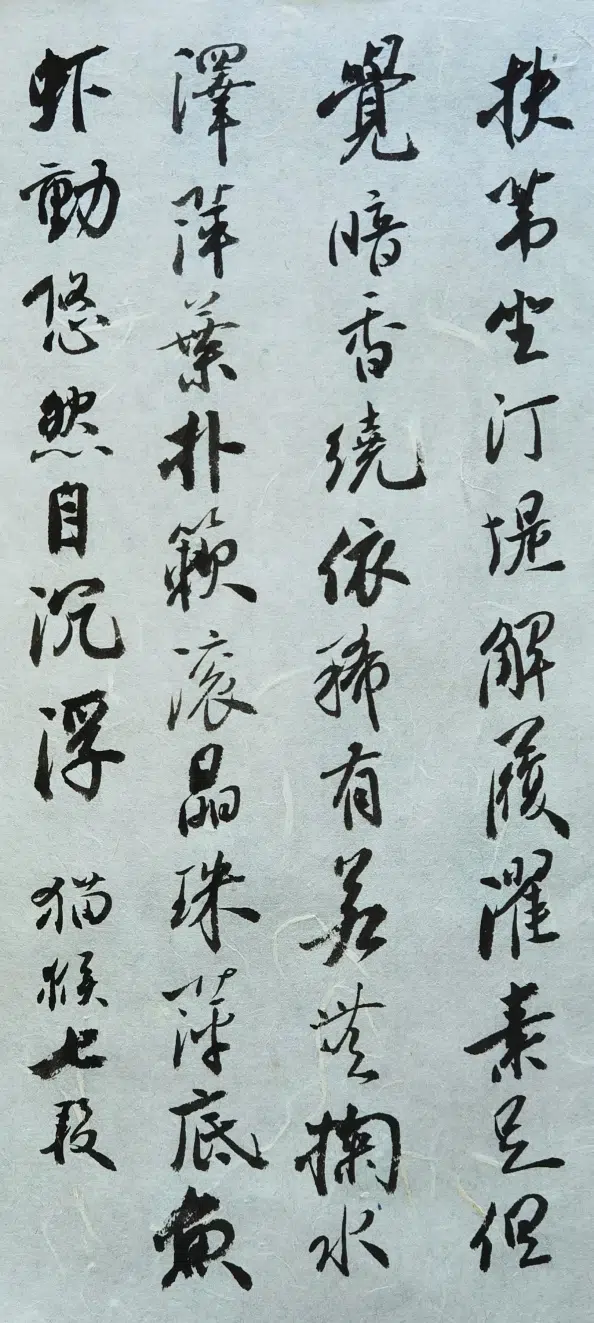 扶弟坐汀堤解履濯素足但
覺暗香繞依稀有若無掬水
澤萍葉朴簌滾晶珠萍底魚
虾動悠然自沉浮
猫猴七段